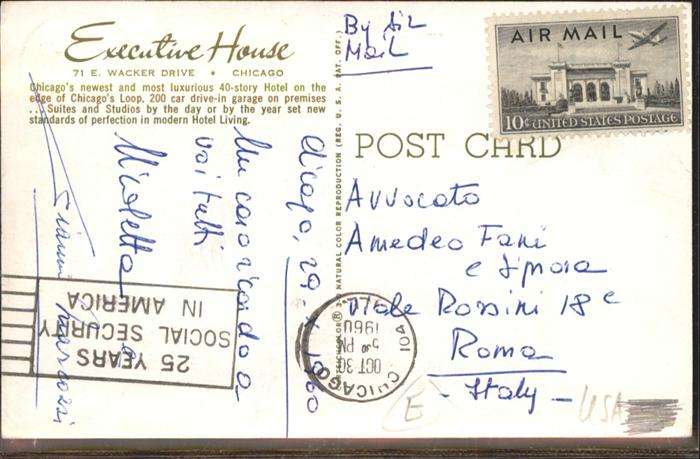 Executive House
71 E. WACKER DRIVE • CHICAGO
Chicago's newest and most luxurious 40-story Hotel on the
edge of Chicago's Loop. 200 car drive-in garage on premises
... Suites and Studios by the day or by the year set new
standards of perfection in modern Hotel Living.
Un caro ricordo a
voi tutti
Nicoletta
Gianni
25 YEARS
SOCIAL SECURITY
IN AMERICA
NATURAL COLOR REPRODUCTION (REG. U. S. A. PAT. OFF.)
By Air
Mail
AIR MAIL
10¢ UNITED STATES POSTAGE
POST CARD
CHICAGO
OCT 30
PM
1960
Avvocato
Amedeo Fani
Viale Rossini 18
Roma
- Italy -
E
USA